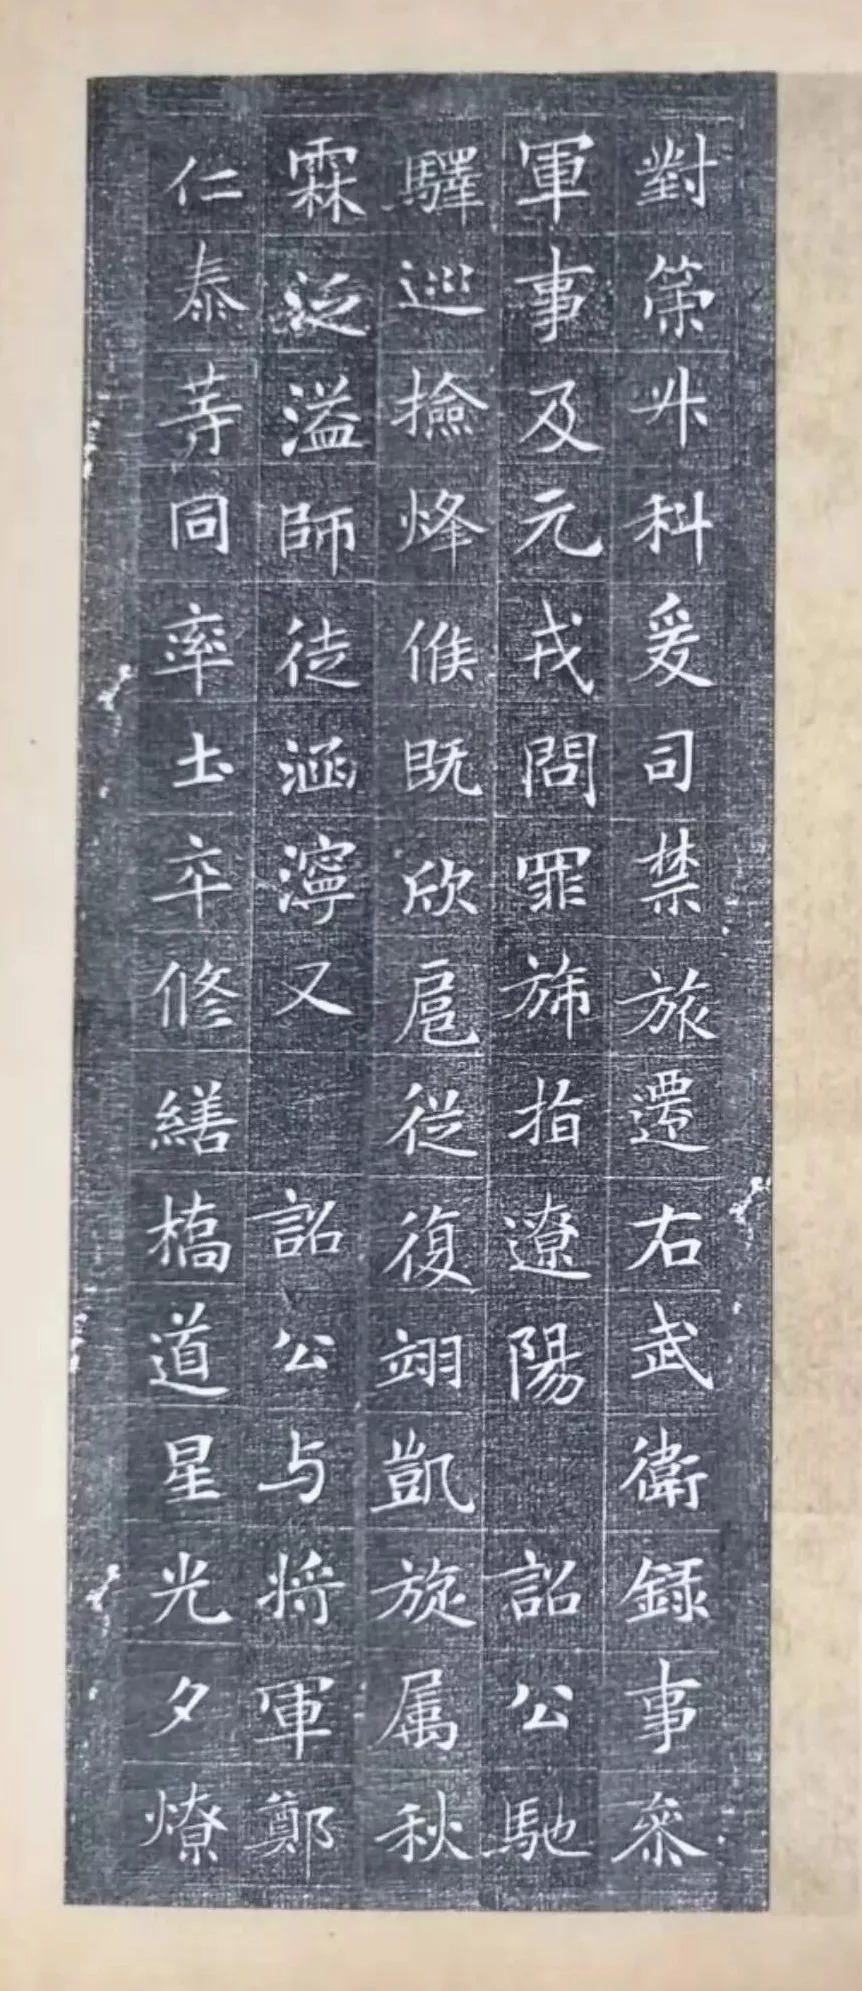 對策升科爰司禁旅遷右武衛錄事叅
軍事及元戎問罪旆指遼陽 詔公馳
驛巡撿烽候既欣扈從復翊凱旋属秋
霖泛溢師徒涵濘又 詔公与將軍鄭
仁泰等同率士卒修繕橋道星光夕燎